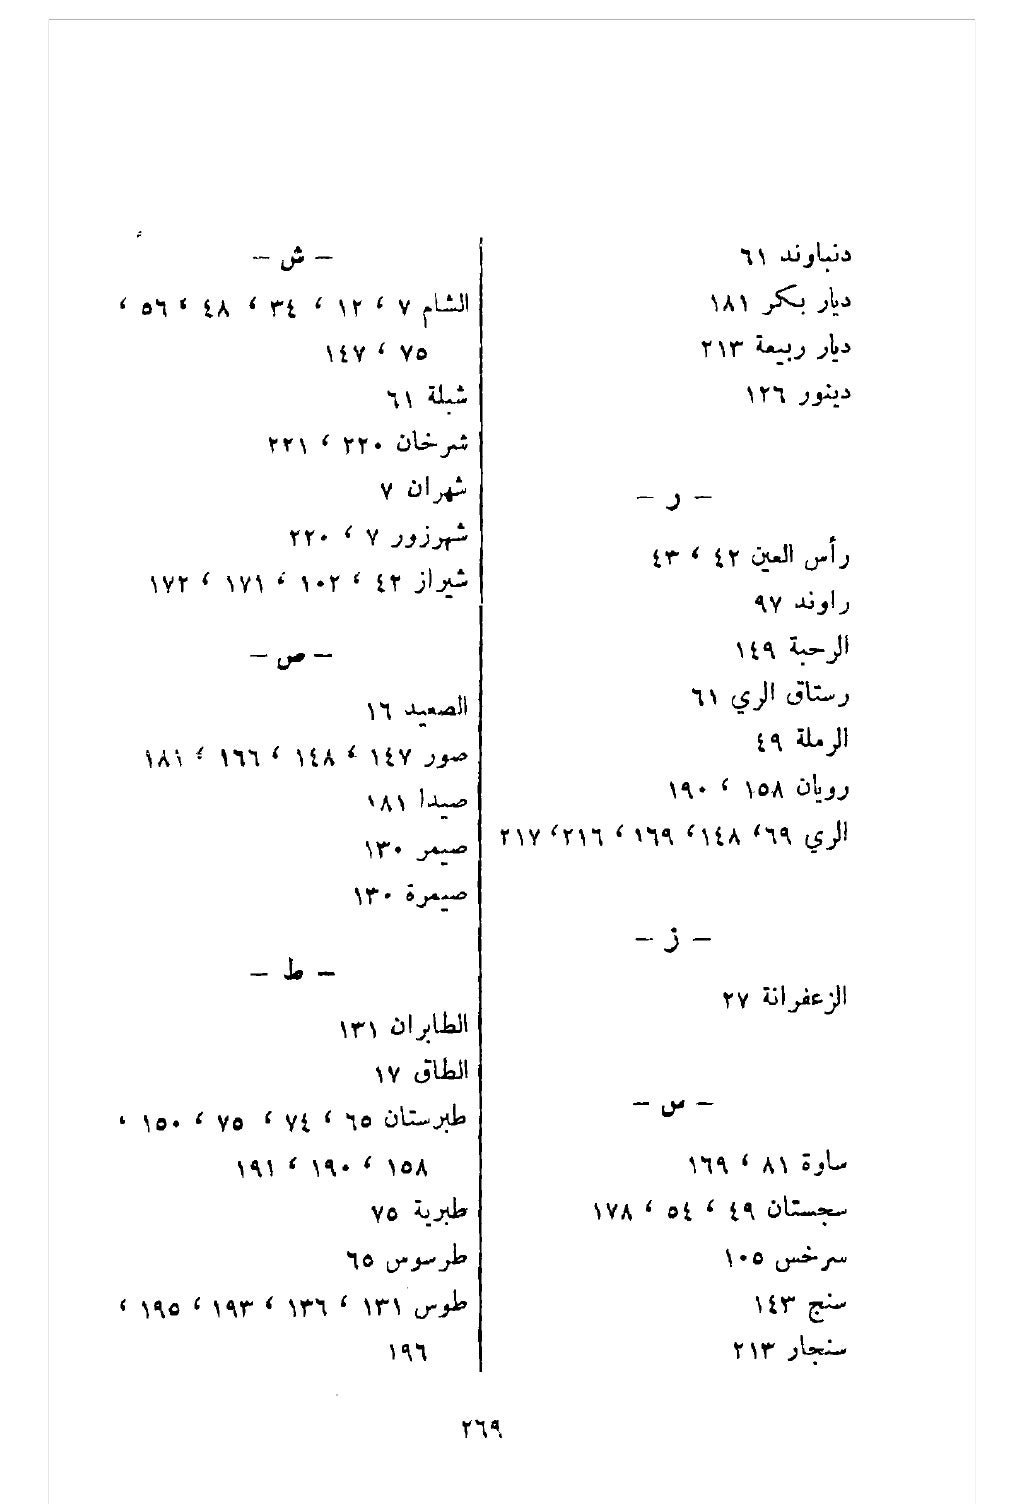 دنباوند ٦١
ديار بكر ١٨١
ديار ربيعة ٢١٣
دينور ١٢٦
— ر —
رأس العين ٤٢ ، ٤٣
راوند ٩٧
الرحبة ١٤٩
رستاق الري ٦١
الرملة ٤٩
رويان ١٥٨ ، ١٩٠
الري ٦٩، ١٤٨، ١٦٩ ، ٢١٦، ٢١٧
— ز —
الزعفرانة ٢٧
— س —
ساوة ٨١ ، ١٦٩
سجستان ٤٩ ، ٥٤ ، ١٧٨
سرخس ١٠٥
سنج ١٤٣
سنجار ٢١٣
— ش —
الشام ٧ ، ١٢ ، ٣٤ ، ٤٨ ، ٥٦ ،
٧٥ ، ١٤٧
شبلة ٦١
شرخان ٢٢٠ ، ٢٢١
شهران ٧
شهرزور ٧ ، ٢٢٠
شيراز ٤٢ ، ١٠٢ ، ١٧١ ، ١٧٢
— ص —
الصعيد ١٦
صور ١٤٧ ، ١٤٨ ، ١٦٦ ، ١٨١
صيدا ١٨١
صيمر ١٣٠
صيمرة ١٣٠
— ط —
الطابران ١٣١
الطاق ١٧
طبرستان ٦٥ ، ٧٤ ، ٧٥ ، ١٥٠ ،
١٥٨ ، ١٩٠ ، ١٩١
طبرية ٧٥
طرسوس ٦٥
طوس ١٣١ ، ١٣٦ ، ١٩٣ ، ١٩٥ ،
١٩٦
٢٦٩